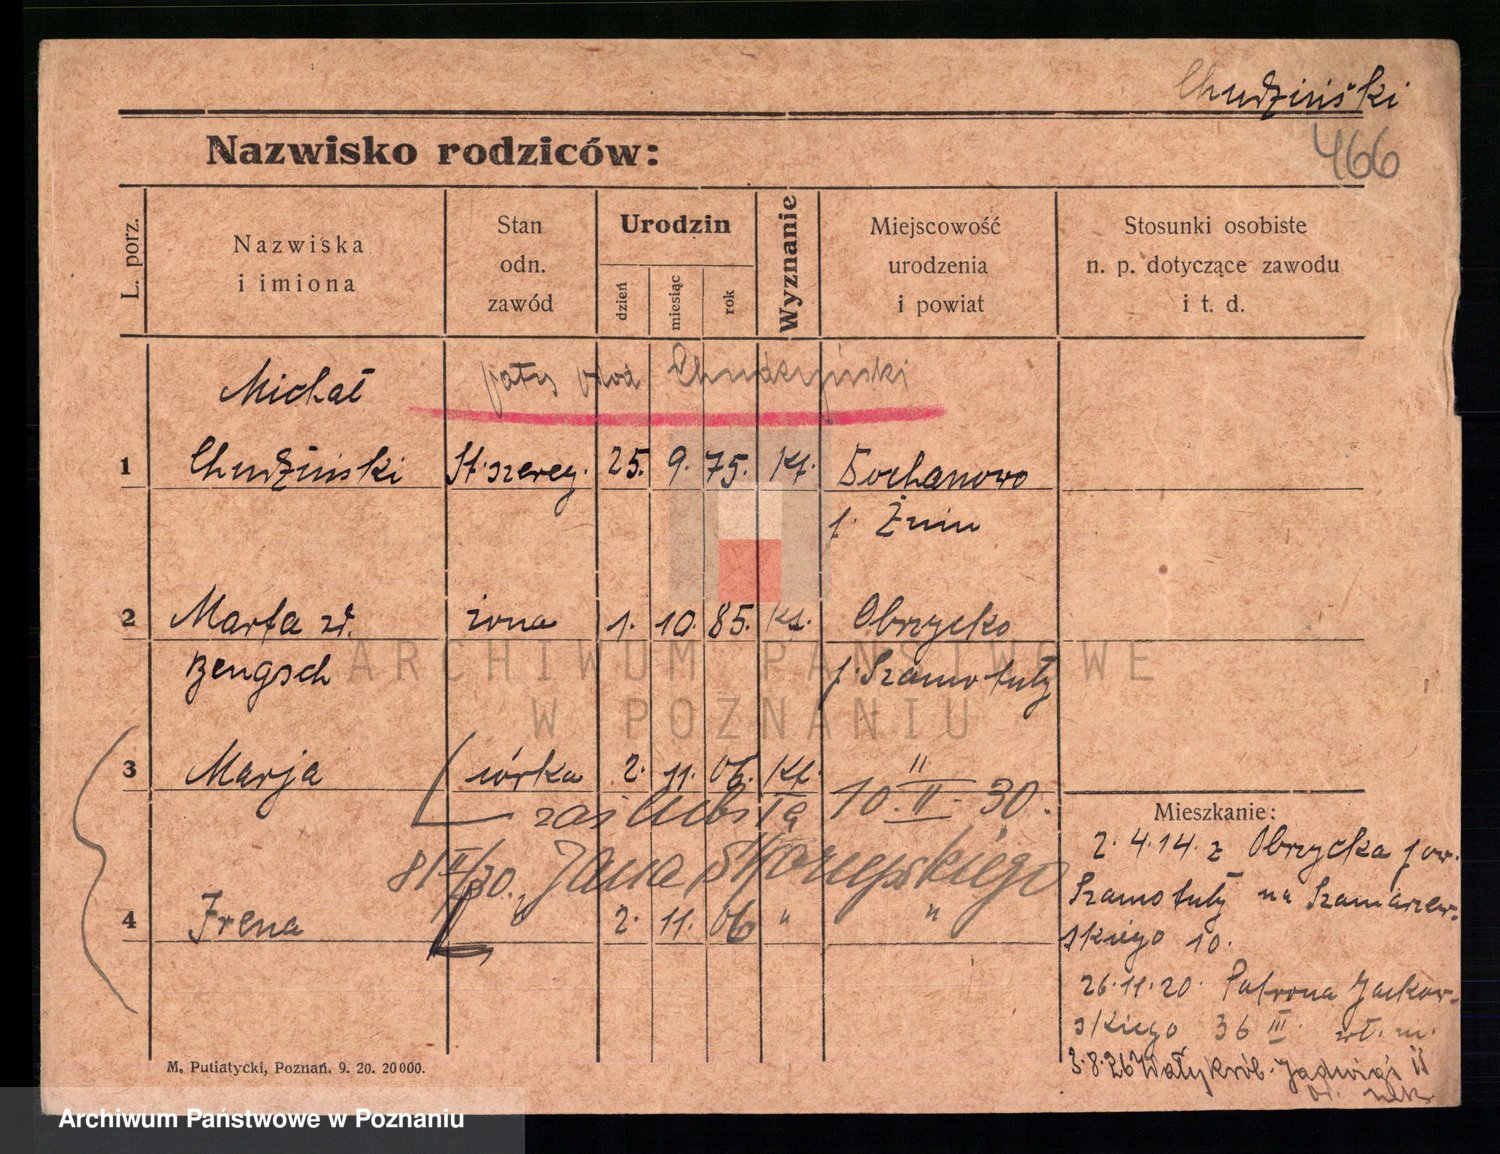 Chudziński
466
Nazwisko rodziców:
L. porz.
Nazwiska
i imiona
Stan
odn.
zawód
Urodzin
dzień
miesiąc
rok
Wyznanie
Miejscowość
urodzenia
i powiat
Stosunki osobiste
n. p. dotyczące zawodu
i t. d.
Michał
Chudzyński
1 Chudziński St. szereg. 25. 9. 75. kt. Sochanowo
p. Żnin
2 Marta zd. żona 1. 10. 85. kt. Obrzycko
Bengsch p. Szamotuły
3 Marja córka 2. 11. 06. kt. "
zaślubiła 10. II. 30.
8/II/30. Jana
4 Irena 2. 11. 06 " "
Mieszkanie:
2.4.14. z Obrzycka pow.
Szamotuły na Szamarzew-
skiego 10.
26.11.20. Patrona Jackow-
skiego 36 III. wł. m.
3.8.26 Wały Król. Jadwigi II
M. Putiatycki, Poznań. 9. 20. 20000.
ARCHIWUM PAŃSTWOWE
W POZNANIU
Archiwum Państwowe w Poznaniu